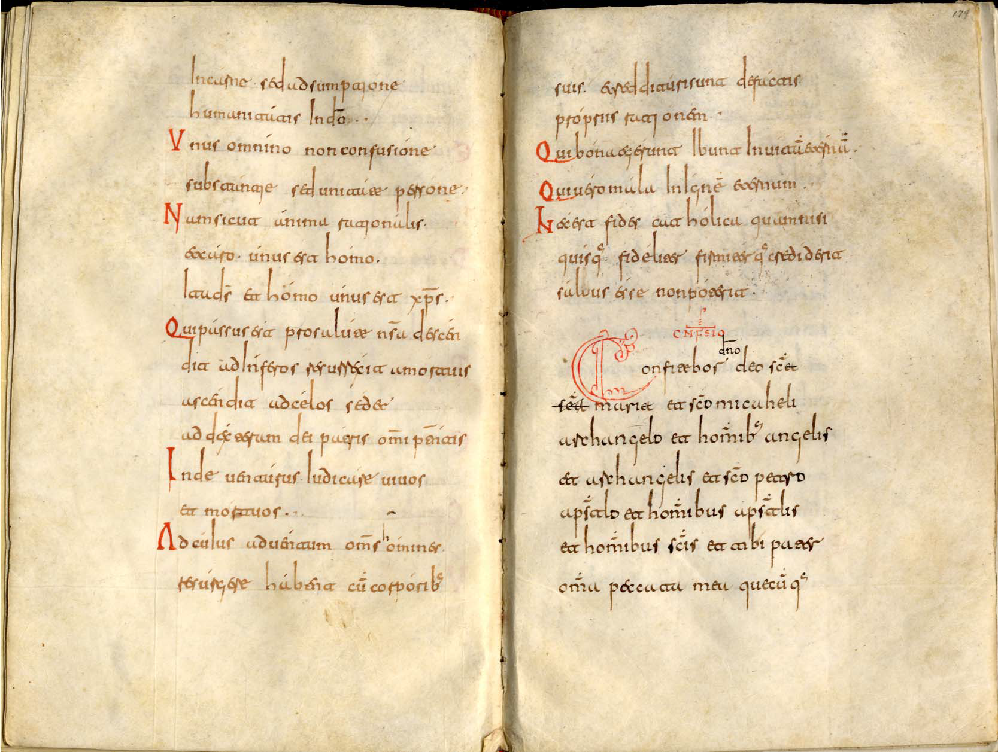 Incarne sed adsumptione
humanitatis Indō..
Unus omnino non confusione
substantiae sed unitate persone.
Nam sicut anima rationalis.
et caro. unus est homo.
Ita ds̄ et homo unus est xp̄s.
Qui passus est pro salute nr̄a descen
dit ad Inferos resurrexit a mortuis
ascendit ad celos sedet
ad dexteram dei patris om̄i potentis
Inde venturus Iudicare vivos
et mortuos...
Ad cuius adventum om̄s homines.
resurgere habent cū corporibꝫ
suis. et reddituri sunt de factis
propriis rationem.
Qui bona egerunt Ibunt In vitā eternā.
Qui vero mala In Ignē eternum.
Hec est fides catholica quam nisi
quisqꝫ fideliter firmiterqꝫ crediderit
salvus esse non poterit.
dn̄o
Confiteor deo scē et
scē marie et scō micaheli
archangelo et hom̄ibꝫ angelis
et archangelis et scō petro
apsłalo et hom̄ibus apsłalis
et hom̄ibus scīs et tibi pater
om̄a peccata mea quecūqꝫ